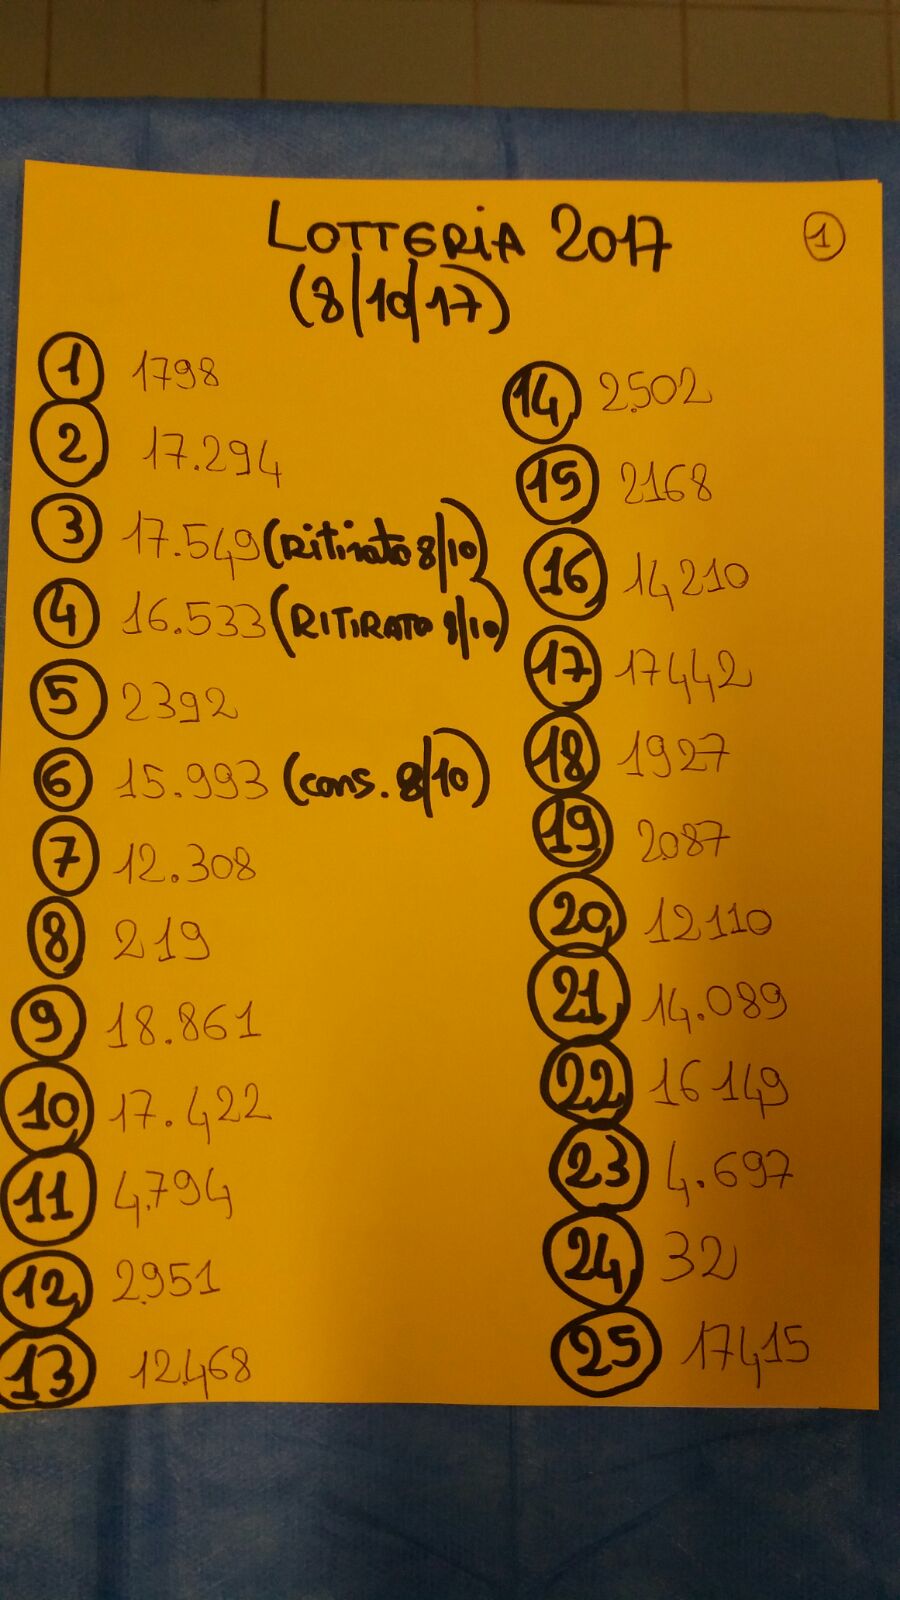 LOTTERIA 2017
1
(8/10/17)
1 1798
2 17.294
3 17.549 (Ritirato 8/10)
4 16.533 (RITIRATO 8/10)
5 2392
6 15.993 (cons. 8/10)
7 12.308
8 219
9 18.861
10 17.422
11 4.794
12 2.951
13 12.468
14 2.502
15 2168
16 14210
17 17442
18 1927
19 2.087
20 12110
21 14.089
22 16149
23 4.697
24 32
25 17415